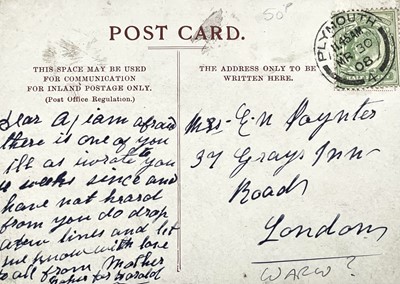 50p
POST CARD.
THIS SPACE MAY BE USED
FOR COMMUNICATION
FOR INLAND POSTAGE ONLY.
(Post Office Regulation.)
THE ADDRESS ONLY TO BE
WRITTEN HERE.
PLYMOUTH
11.45AM
MR 30
08
4
Dear A, I am afraid
there is one of you
ill as I wrote to you
weeks since and
have not heard
from you do drop
a few lines and let
me know with love
to all from Mother
Father & Harold
Mrs. E N Poynter
37 Grays Inn
Road
London
WARW?